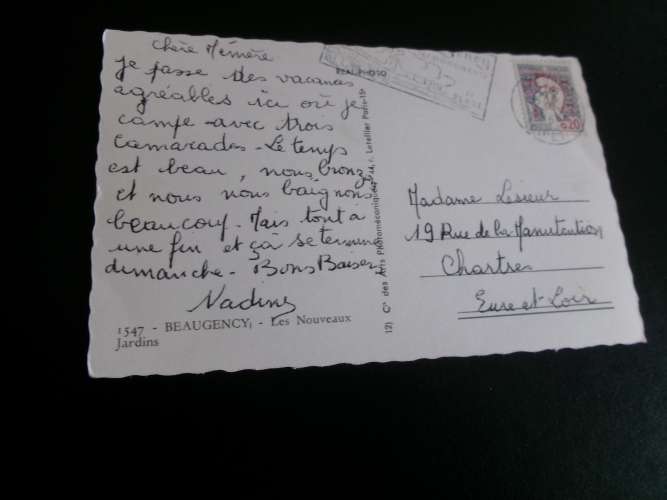 Chère Mémère
Je passe des vacances
agréables ici où je
campe avec trois
camarades - Le temps
est beau, nous bronzons
et nous nous baignons
beaucoup. Mais tout a
une fin et ça se termine
dimanche - Bons Baisers
Nadine
1547 - BEAUGENCY - Les Nouveaux
Jardins
REAL-PHOTO
Cie des Arts Photomécaniques, 44, r. Letellier Paris-15e
0,20
Madame Lesieur
19 Rue de la Manutention
Chartres
Eure-et-Loir